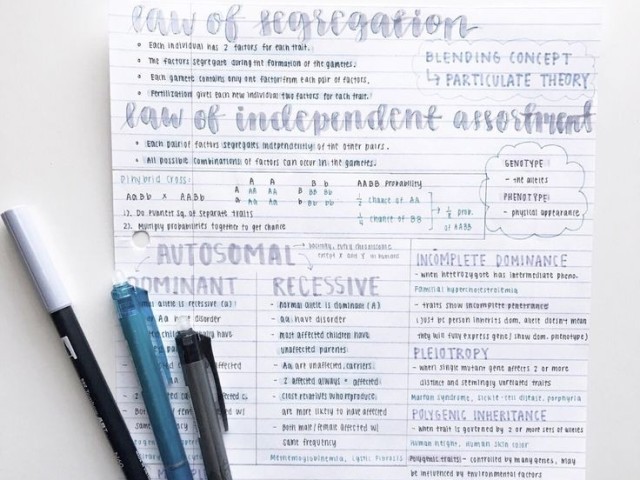 law of segregation
• Each individual has 2 factors for each trait.
• The factors segregate during the formation of the gametes.
• Each gamete contains only one factor from each pair of factors.
• Fertilization gives each new individual two factors for each trait.
BLENDING CONCEPT
↳ PARTICULATE THEORY
law of independent assortment
• Each pair of factors segregates independently of the other pairs.
• All possible combinations of factors can occur in the gametes.
GENOTYPE:
- the alleles
PHENOTYPE:
- physical appearance
Dihybrid Cross:
AaBb x AABb
1). Do Punnett Sq. of separate traits
2). Multiply probabilities together to get chance
A A
A AA AA
a Aa Aa
B b
B BB Bb
b Bb bb
AABB Probability
1/2 chance of AA
1/4 chance of BB
→ 1/8 prob. of AABB
AUTOSOMAL
→ basically, every chromosome except X and Y in humans
DOMINANT
allele is recessive (a)
Aa have disorder
children have
affected
Both female affected w/
same
RECESSIVE
- normal allele is dominant (A)
- aa have disorder
- most affected children have
unaffected parents
- Aa are unaffected carriers
- 2 affected always = affected
- close relatives who reproduce
are more likely to have affected
- Both male/female affected w/
same frequency
Methemoglobinemia, Cystic Fibrosis
INCOMPLETE DOMINANCE
- when heterozygote has intermediate pheno.
Familial hypercholesterolemia
- traits show incomplete penetrance
(just bc person inherits dom. allele doesn't mean
they will fully express gene/show dom. phenotype)
PLEIOTROPY
- when single mutant gene affects 2 or more
distinct and seemingly unrelated traits
Marfan syndrome, sickle-cell disease, porphyria
POLYGENIC INHERITANCE
- when trait is governed by 2 or more sets of alleles
Human height, human skin color
Polygenic traits - controlled by many genes, may
be influenced by environmental factors